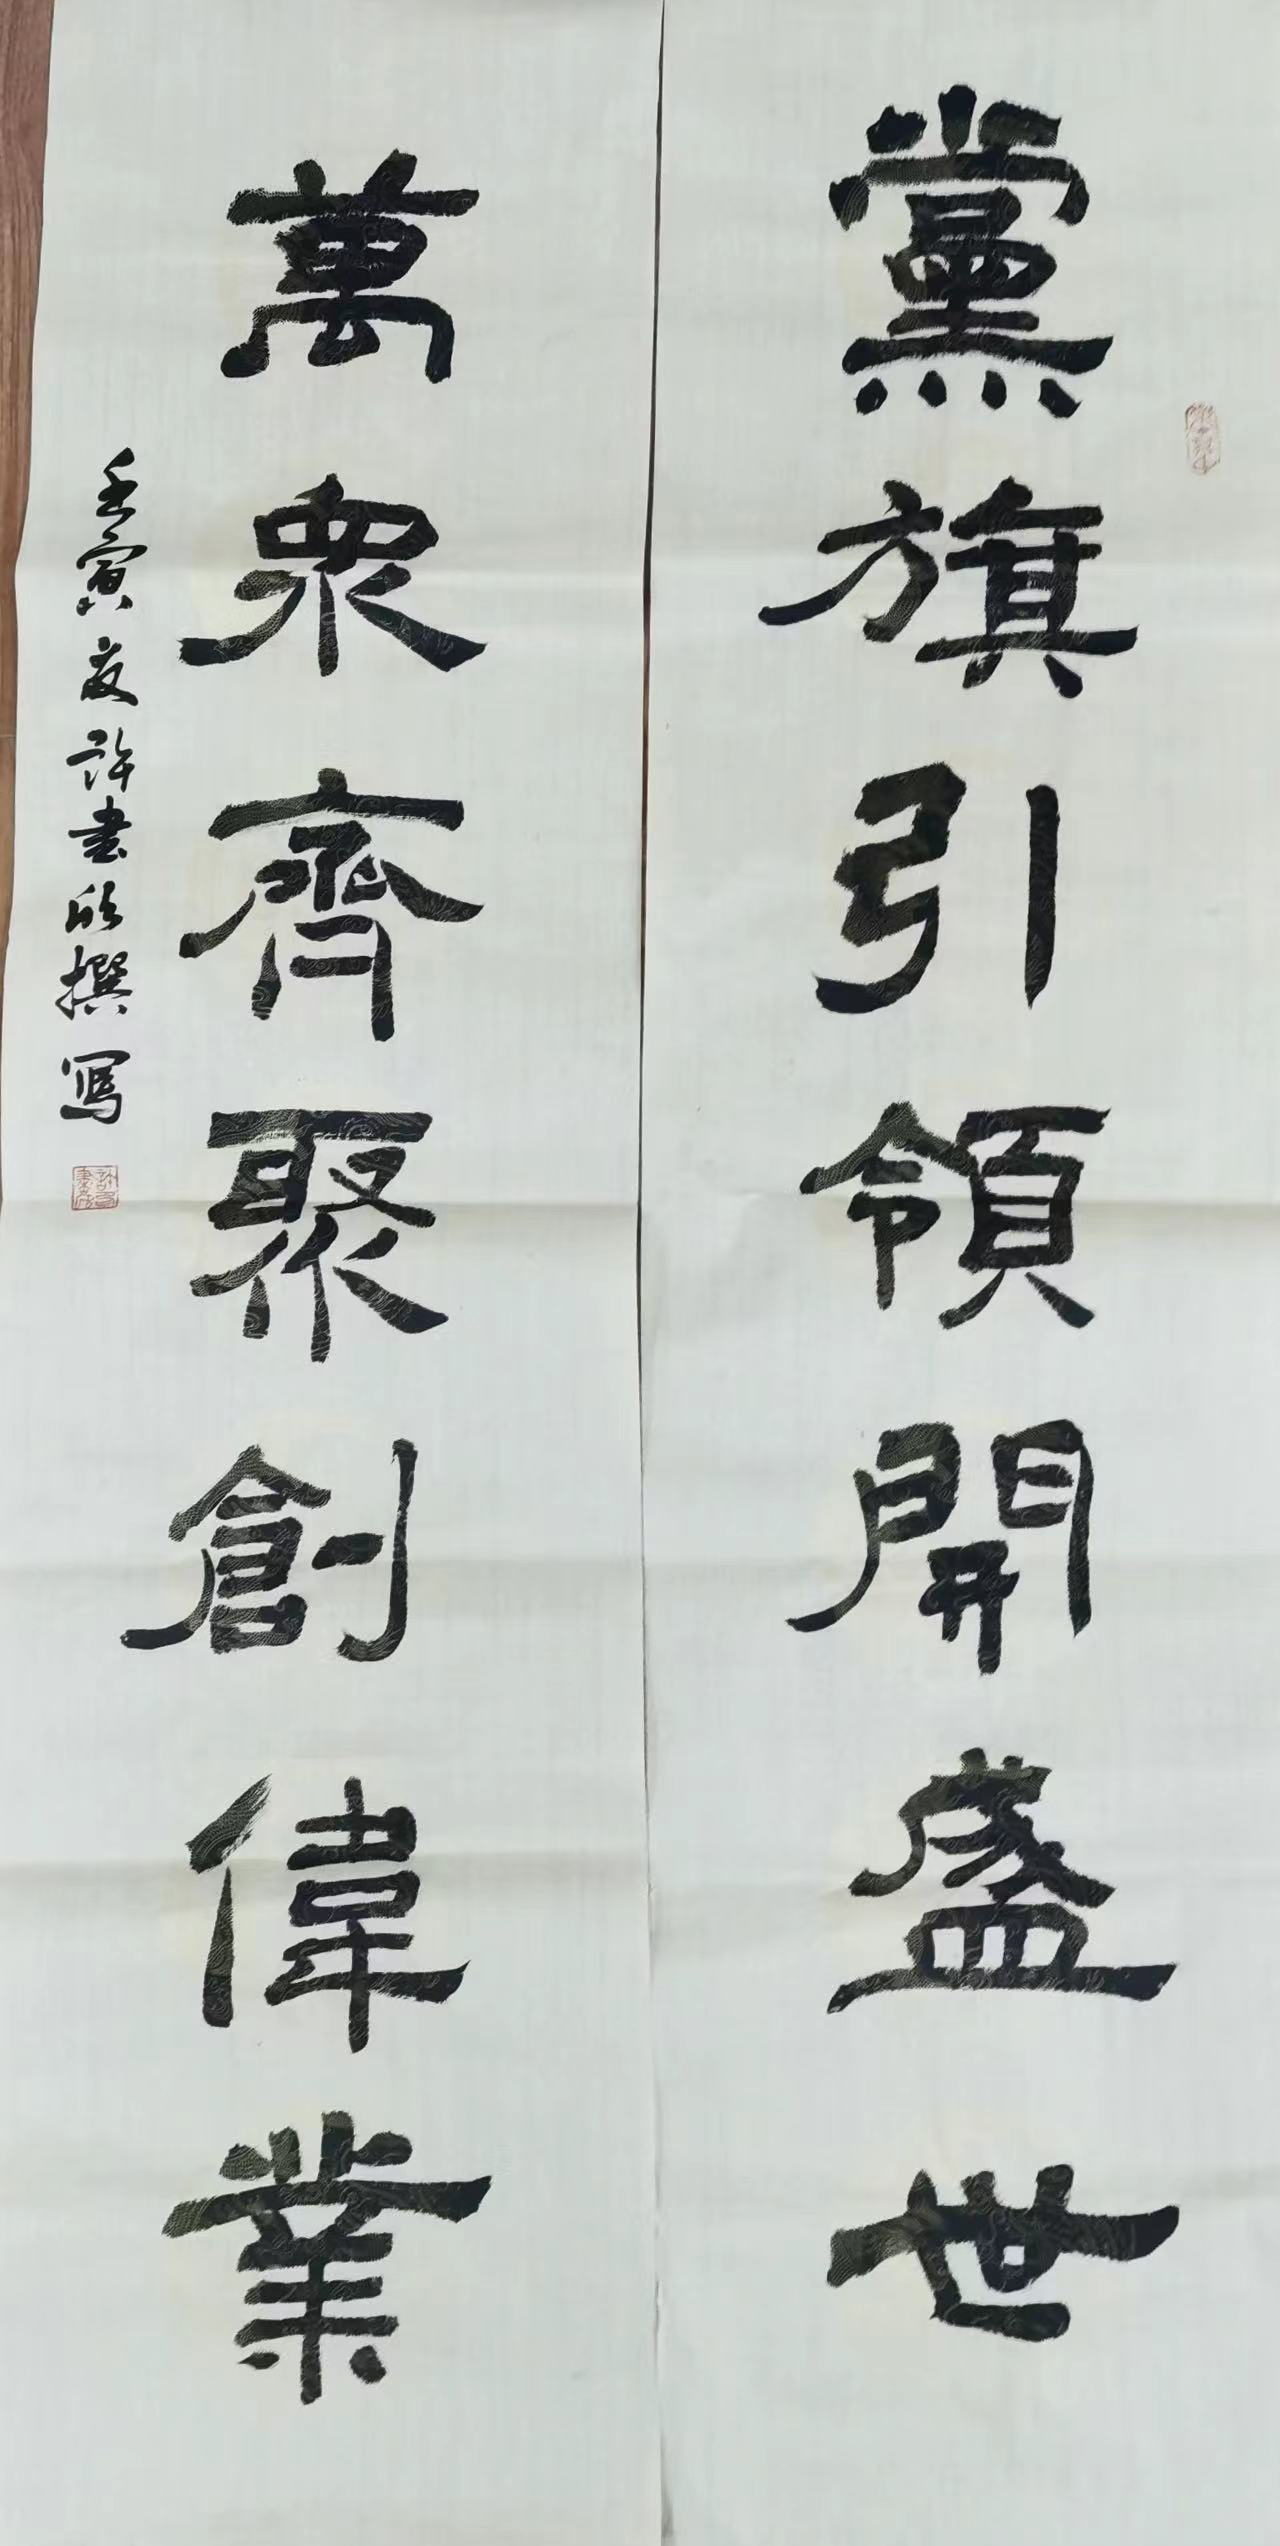 黨旗引領開盛世
萬眾齊聚創偉業
壬寅夏許書欣撰寫